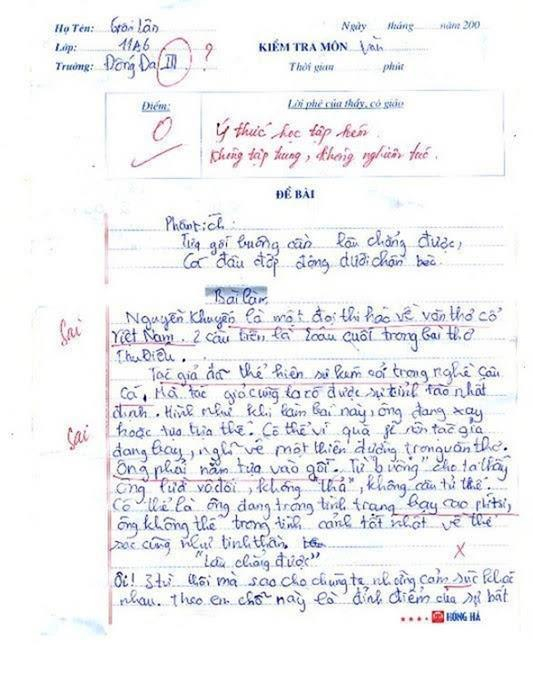 Họ Tên: Trần Lân Ngày tháng năm 200
Lớp: 11A6 KIỂM TRA MÔN Văn
Trường: Đống Đa III ? Thời gian phút
Điểm: Lời phê của thầy, cô giáo
0 Ý thức học tập kém.
Không tập trung, không nghiêm túc.
ĐỀ BÀI
Phân tích:
Tựa gối buông cần lâu chẳng được,
Cá đâu đớp động dưới chân bèo.
Bài làm
Nguyễn Khuyến là một đại thi hào về văn thơ cổ
Sai
Việt Nam. 2 câu trên là 2 câu cuối trong bài thơ
Thu Điếu.
Tác giả đã thể hiện sự kém cỏi trong nghề câu
cá. Mà tác giả cũng ta có được sự tỉnh táo nhất
định. Hình như khi làm bài này, ông đang xay
Sai
hoặc tựa tựa thế. Có thể vì quá phê nên tác giả
đang bay, nghĩ về một thiên đường trong vần thơ.
Ông phải nằm tựa vào gối. Từ "buông" cho ta thấy
ông lười vô đối, không "thả", không cần tử tế.
Có thể là ông đang trong tình trạng bay cao phi si,
ông không thể trong tình cảnh tốt nhất về thể
xác cũng như tinh thần.
"lâu chẳng được" X
Ôi! 3 từ thôi mà sao cho chúng ta những cảm xúc khác
nhau. Theo em chỗ này là đỉnh điểm của sự bất
HỒNG HÀ